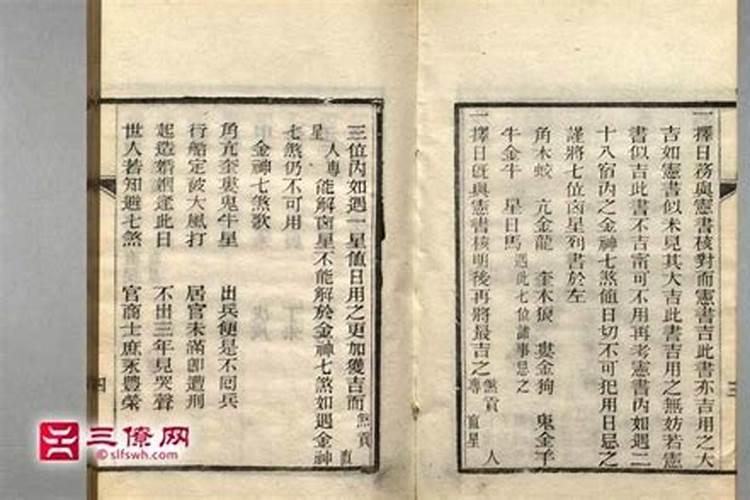 一擇日務與憲書核對而憲書吉此書亦吉用之大
吉如憲書似未見其大吉此書吉用之無妨若憲
書似吉此書不吉甯可不用再考憲書內如遇二
十八宿內之金神七煞值日切不可犯用日忌之
謹將七位凶星列書於左
角木蛟 亢金龍 奎木狼 婁金狗 鬼金羊
牛金牛 星日馬 遇此七位諸事忌之
一擇日既與憲書核明後再將最吉之 煞貢 人專 直星
三
三位內如遇一星值日用之更加獲吉而 煞貢 直
星 人專 能解凶星不能解於金神七煞如遇金神
七煞仍不可用
金神七煞歌
角亢奎婁鬼牛星 出兵便是不回兵
行船定被大風打 居官未滿即遭刑
起造婚姻逢此日 不出三年見哭聲
世人若知避七煞 官商士庶永豐榮
四
三僚网
©slfswh.com